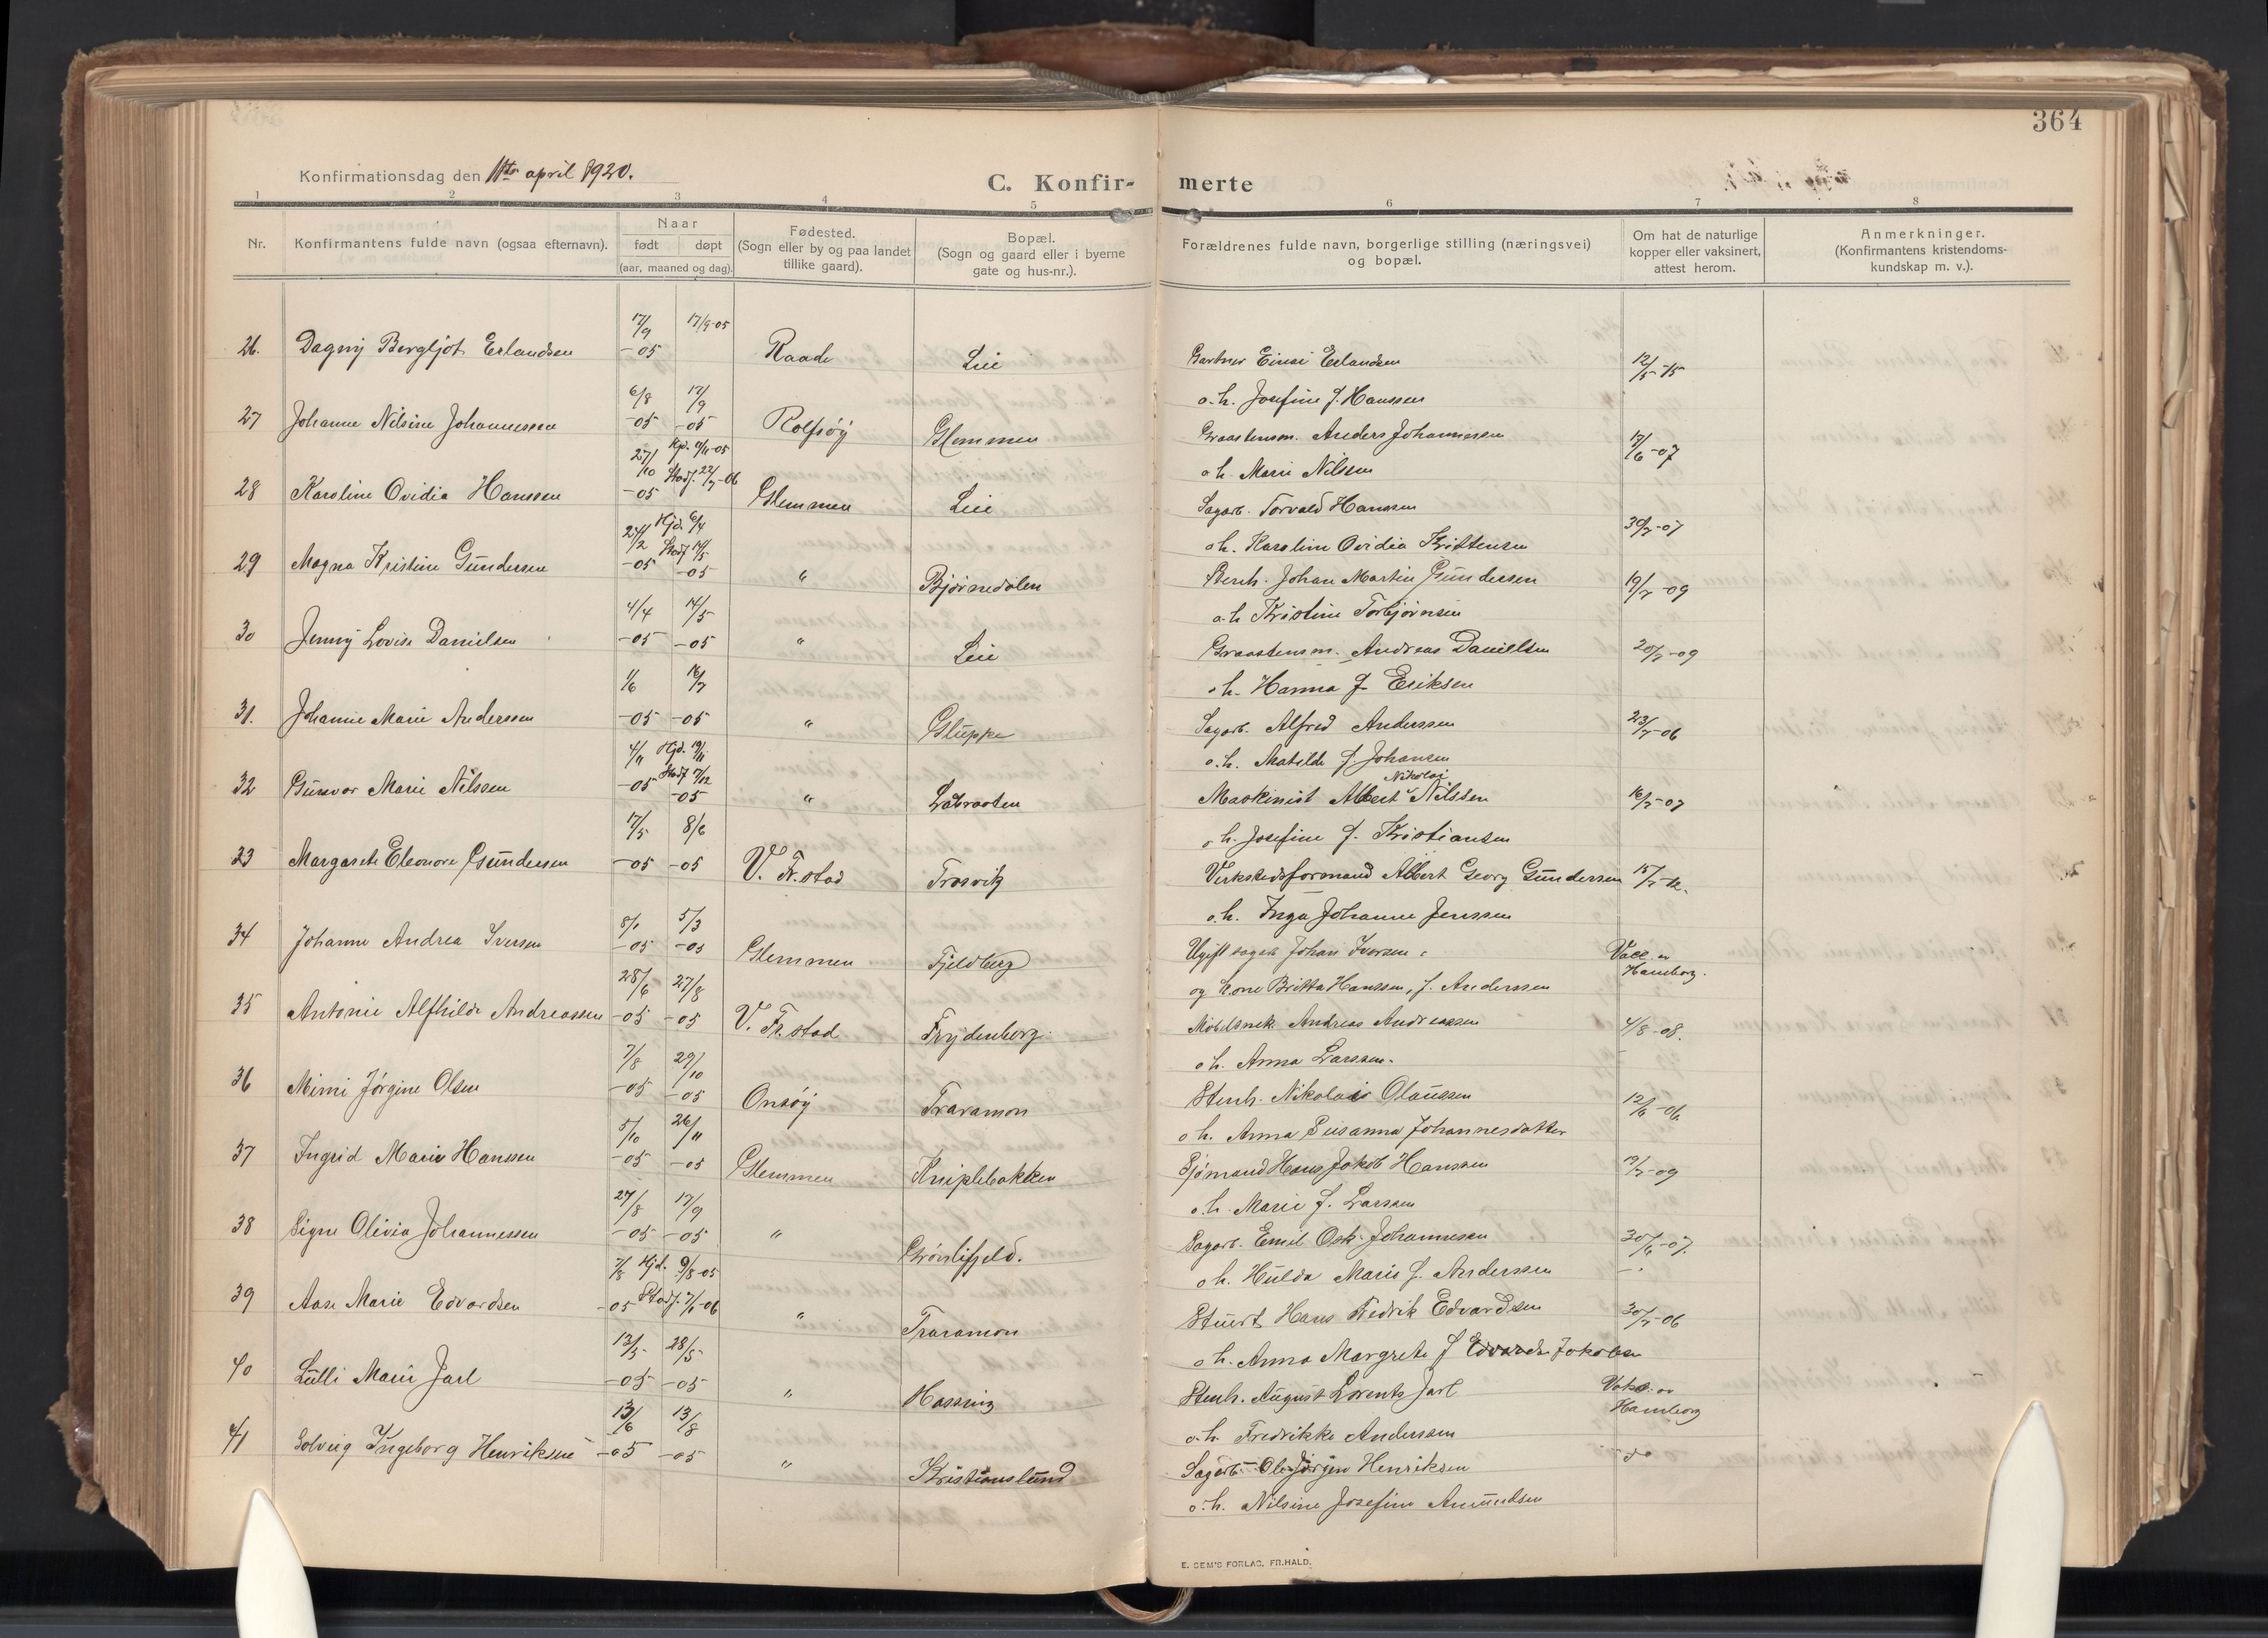 364
Konfirmationsdag den 11te april 1920.
C. Konfir- merte
1 2 3 4 5 6 7 8
Nr.
Konfirmantens fulde navn (ogsaa efternavn).
Naar
født døpt
(aar, maaned og dag).
Fødested.
(Sogn eller by og paa landet
tillike gaard).
Bopæl.
(Sogn og gaard eller i byerne
gate og hus-nr.).
Forældrenes fulde navn, borgerlige stilling (næringsvei)
og bopæl.
Om hat de naturlige
kopper eller vaksinert,
attest herom.
Anmerkninger.
(Konfirmantens kristendoms-
kundskap m. v.).
26. Dagny Bergljot Erlandsen 17/9 -05 17/9-05 Raade Lie Gartner Einar Erlandsen 12/5-15
o.h. Josefine f. Hanssen
27 Johanne Nilsine Johannessen 6/8 -05 17/9 -05 Rolfsøy Glemmen Graastensm. Anders Johannessen 17/6-07
o.h. Marie Nilssen
28 Karoline Ovidia Hanssen 27/10 -05 Hjd. 4/11-05 Stadf. 22/7-06 Glemmen Lie Sagarb. Torvald Hanssen 30/7-07
o.h. Karoline Ovidia Kristensen
29 Magna Kristine Gundersen 24/2 -05 Hjd. 6/4 Stadf 14/5 -05 " Bjørnedalen Stenh. Johan Martin Gundersen 19/7-09
o.h. Kristine Torbjørnsen
30 Jenny Lovise Danielsen 4/4 -05 14/5 -05 " Lie Graastensm. Andreas Daniellsen 20/7-09
o.h. Hanna f. Eriksen
31. Johanne Marie Anderssen 1/6 -05 16/7 -05 " Gluppe Sagarb. Alfred Anderssen 23/7-06
o.h. Matilde f. Johansen
32 Gunvor Marie Nilssen 4/11 -05 Hjd. 19/11 Stadf 17/12 -05 " Labraaten Maskinist Albert Nikolai Nilssen 16/7-07
o.h. Josefine f. Kristiansen
33 Margarete Eleonore Gundersen 17/5 -05 8/6 -05 V. Fr.stad Trosvik Verkstedsformand Albert Georg Gundersen 15/7-12.
o.h. Inga Johanne Jenssen
34 Johanne Andrea Iversen 8/1 -05 5/3 -05 Glemmen Fjeldberg Ugift sagarb. Johan Iversen Vacc. av
Hamborg.
og kone Britta Hanssen, f. Anderssen
35 Antonie Alfhilde Andreassen 28/6 -05 27/8 -05 V. Fr.stad Frydenberg. Møbelsnek. Andreas Andreassen 4/8-08.
o.h. Anna Larssen.
36 Mimi Jørgine Olsen 7/8 -05 29/10 -05 Onsøy Traramon Stenh. Nikolai Olaussen 12/6-06
o.h. Anna Susanna Johannesdatter
37 Ingrid Marie Hanssen 5/10 -05 26/11 -05 Glemmen Kniplebakken Sjømand Hans Jakob Hanssen 17/7-09
o.h. Marie f. Larssen
38 Signe Olivia Johannessen 27/8 -05 17/9 -05 " Grønlifjeld. Sagarb. Emil Osk. Johannessen 30/6-07.
o.h. Hulda Marie f. Anderssen
39 Aase Marie Edvardsen 7/8 -05 Hjd. 9/8-05 Stadf. 7/1-06 " Traramon Stuert Hans Fredrik Edvardsen 30/7-06
o.h. Anna Margrete f Jakobsen
40 Lulli Marie Jarl 13/3 -05 28/5 -05 " Hassing Stenh. August Lorents Jarl Vaks. av
Hamborg
o.h. Fredrikke Anderssen
41 Solveig Ingeborg Henriksen 13/6 -05 13/8 -05 " Kristianslund Sagarb. Ole Jørgen Henriksen do
o.h. Nilsine Josefine Amundsen
E. SEM'S FORLAG, FR.HALD.